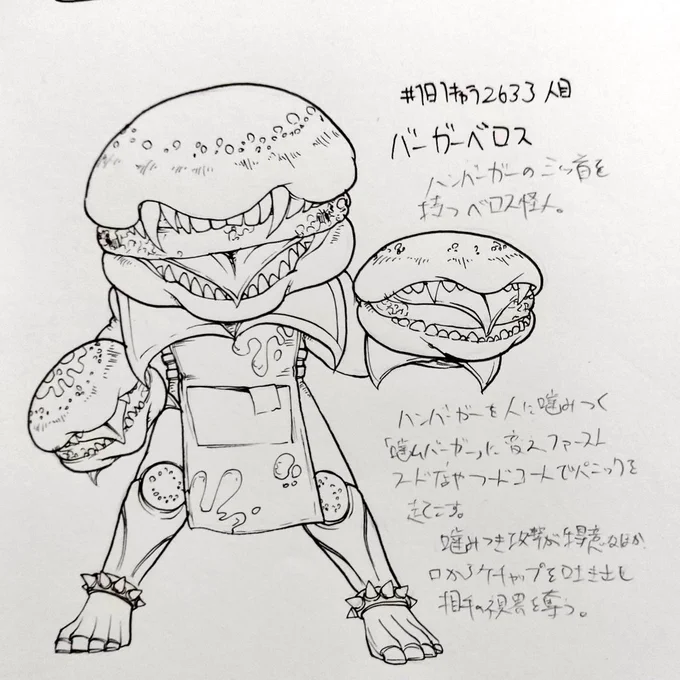 #1日1きゅう2633人目
バーガーベロス
ハンバーガーの三ツ首を
持つベロス怪人。
ハンバーガーを人に噛みつく
「噛むバーガー」に変えファースト
フード店やフードコートでパニックを
起こす。
噛みつき攻撃が得意なほか
口からケチャップを吐き出し
相手の視界を奪う。